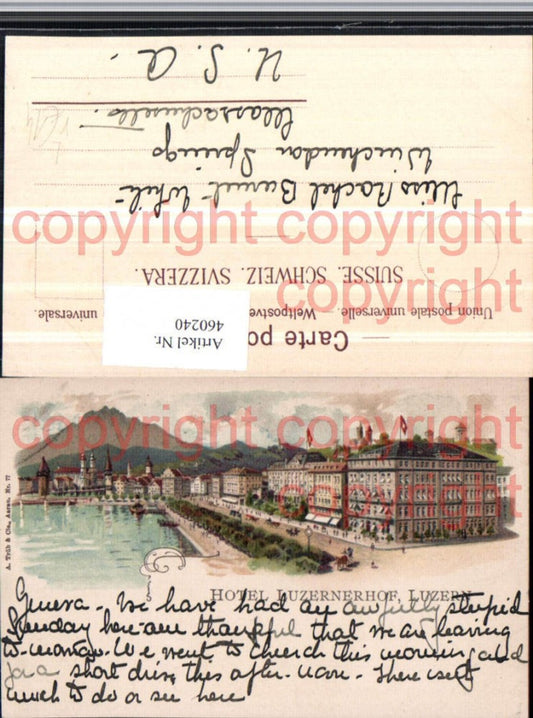 U. S. A.
Massachusetts.
Winchendon Springs
Miss Rachel Burnit White
copyright copyright
SUISSE. SCHWEIZ. SVIZZERA.
Union postale universelle. — Weltpostve universale.
Carte po
Artikel Nr.
460240
copyright copyright
copyright copyright
A. Trüb & Cie., Aarau. Nr. 77
HOTEL LUZERNERHOF, LUZERN
Geneva - We have had an awfully stupid
Sunday here - am thankful that we are leaving
to-morrow. We went to church this morning and
for a short drive this after-noon. There isn't
much to do or see here